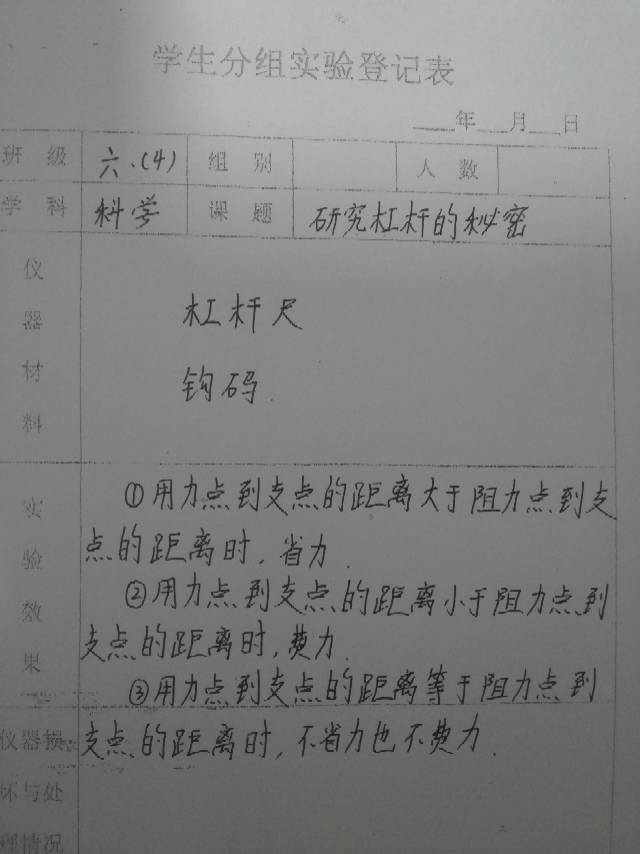 学生分组实验登记表
年 月 日
班级 六.(4) 组别 人数
学科 科学 课题 研究杠杆的秘密
仪器材料
杠杆尺
钩码.
实验效果
①用力点到支点的距离大于阻力点到支
点的距离时,省力.
②用力点到支点的距离小于阻力点到
支点的距离时,费力.
③用力点到支点的距离等于阻力点到
支点的距离时,不省力也不费力.
仪器损
坏与处
理情况